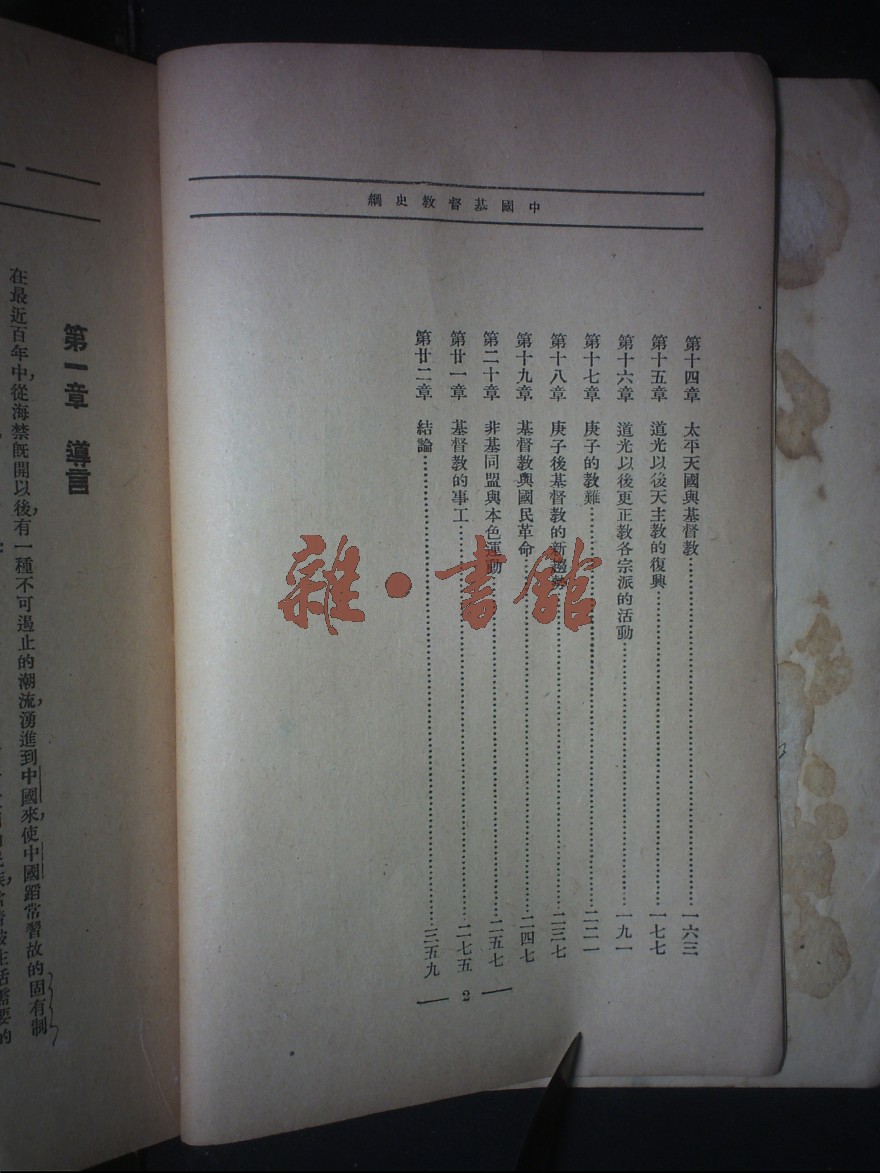 中國基督教史綱
第十四章　太平天國與基督教……一六三
第十五章　道光以後天主教的復興……一七七
第十六章　道光以後更正教各宗派的活動……一九一
第十七章　庚子的教難……二二一
第十八章　庚子後基督教的新趨勢……二三七
第十九章　基督教與國民革命……二四七
第二十章　非基同盟與本色運動……二五七
第廿一章　基督教的事工……二七五
第廿二章　結論……三五九
2
雜·書館
第一章　導言
在最近百年中，從海禁既開以後，有一種不可遏止的潮流，湧進到中國來，使中國蹈常習故的固有制